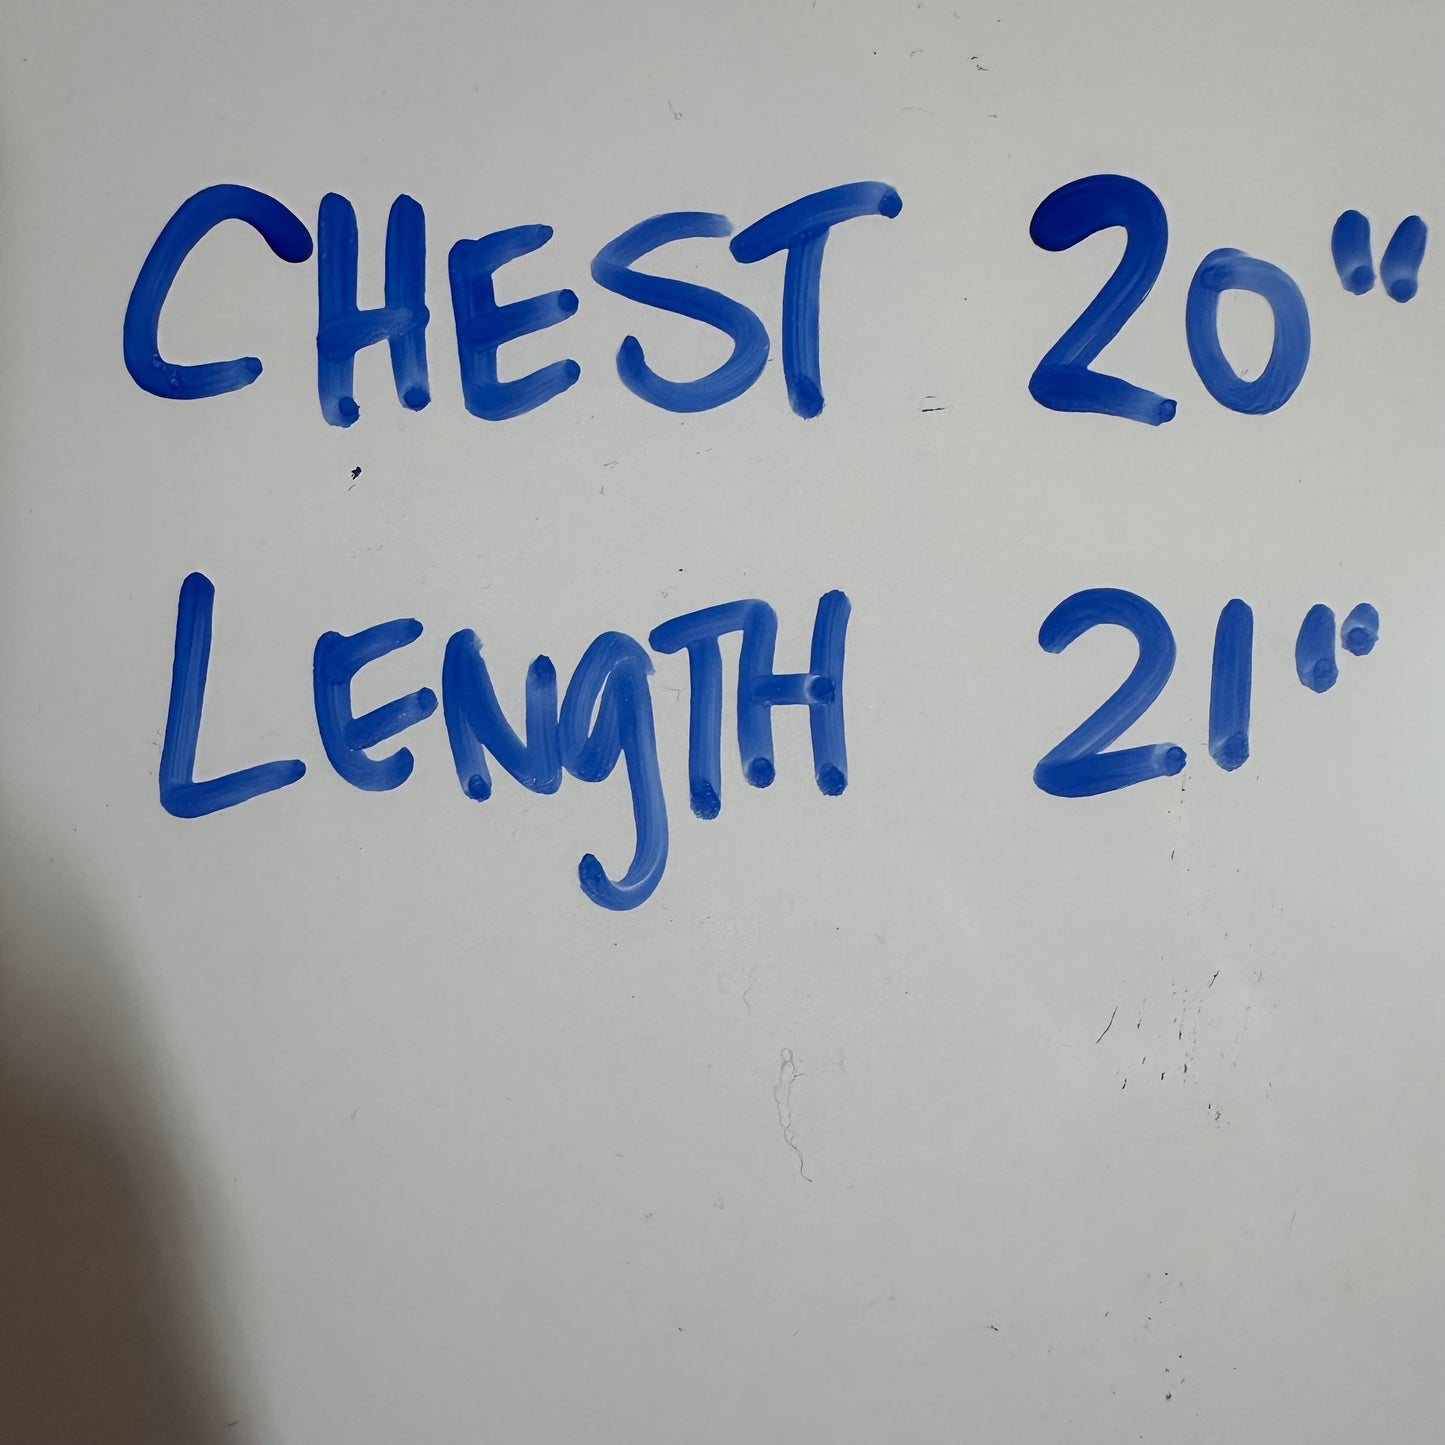 CHEST 20"
LENgTH 21"